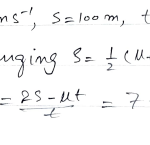 ms⁻¹, S=100m, t
nging S = ½ (u
= 2S - ut / t = 7